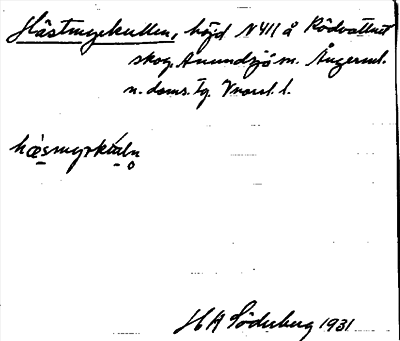 Hästmyrkullen, höjd N Y11 å Rödvattnet
skog, Anundsjö sn. Ångerml.
n. doms. Tg. Vnorrl. l.
hæsmyrkùln
H A Söderberg 1931